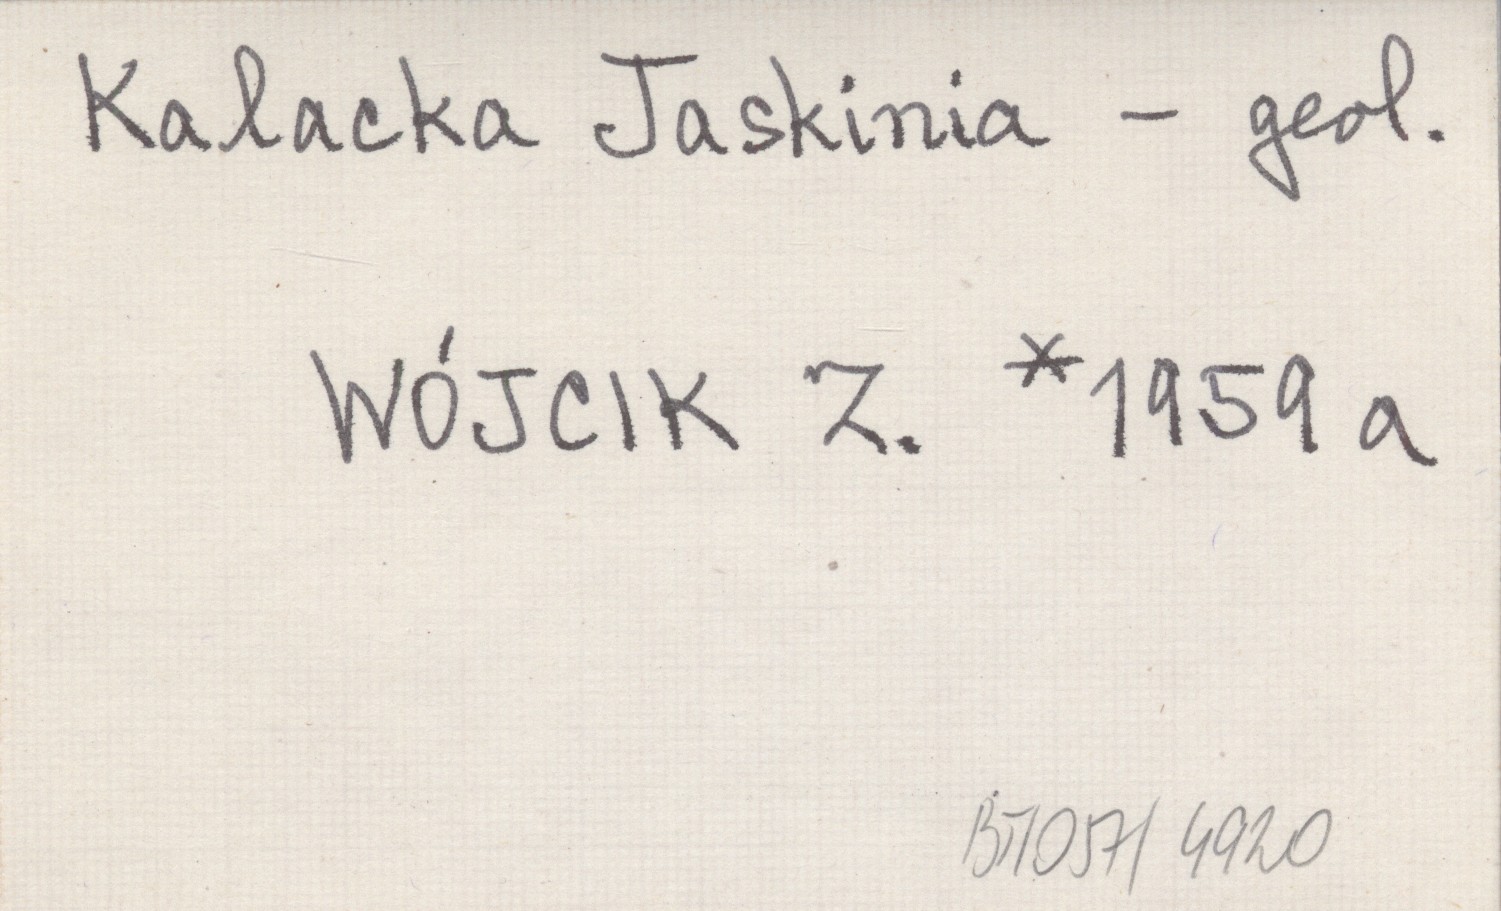 Kalacka Jaskinia - geol.
WÓJCIK Z. *1959a
BT/057/4920